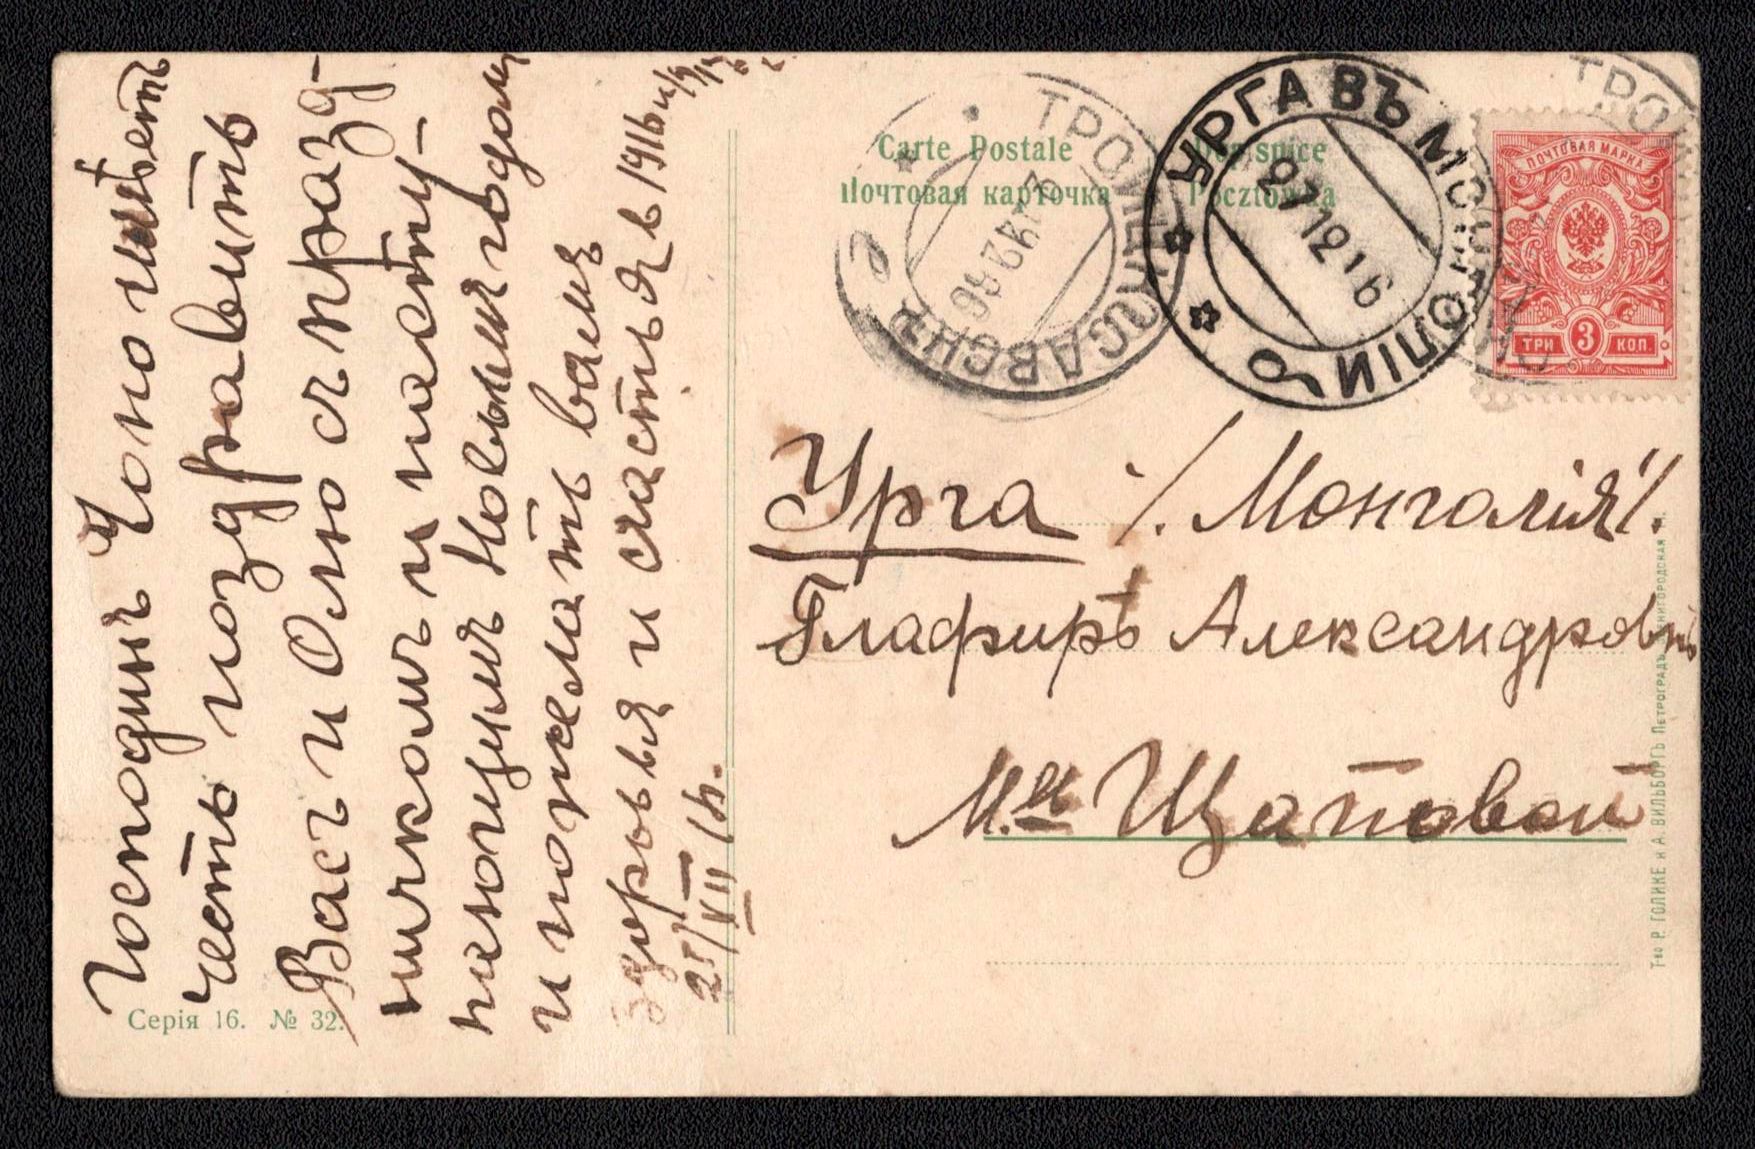 Господинъ Чоно имѣетъ
честь поздравить
Васъ и Олю съ празд-
никомъ и насту-
пающимъ Новымъ годомъ
и пожелать вамъ
здоровья и счастья въ 1916
25/XII 15.
Carte Postale
Почтовая карточка
Dopisnice
Pocztówka
ТРОИЦКОСАВСКЪ
УРГА ВЪ МОНГОЛІИ
27 12 16
б
ТРОИЦ
ПОЧТОВАЯ МАРКА
ТРИ 3 КОП.
Урга /. Монголія /.
Глафирѣ Александровнѣ
М-ме Щаповой
Серія 16. № 32.
Т-во Р. ГОЛИКЕ и А. ВИЛЬБОРГЪ Петроградъ